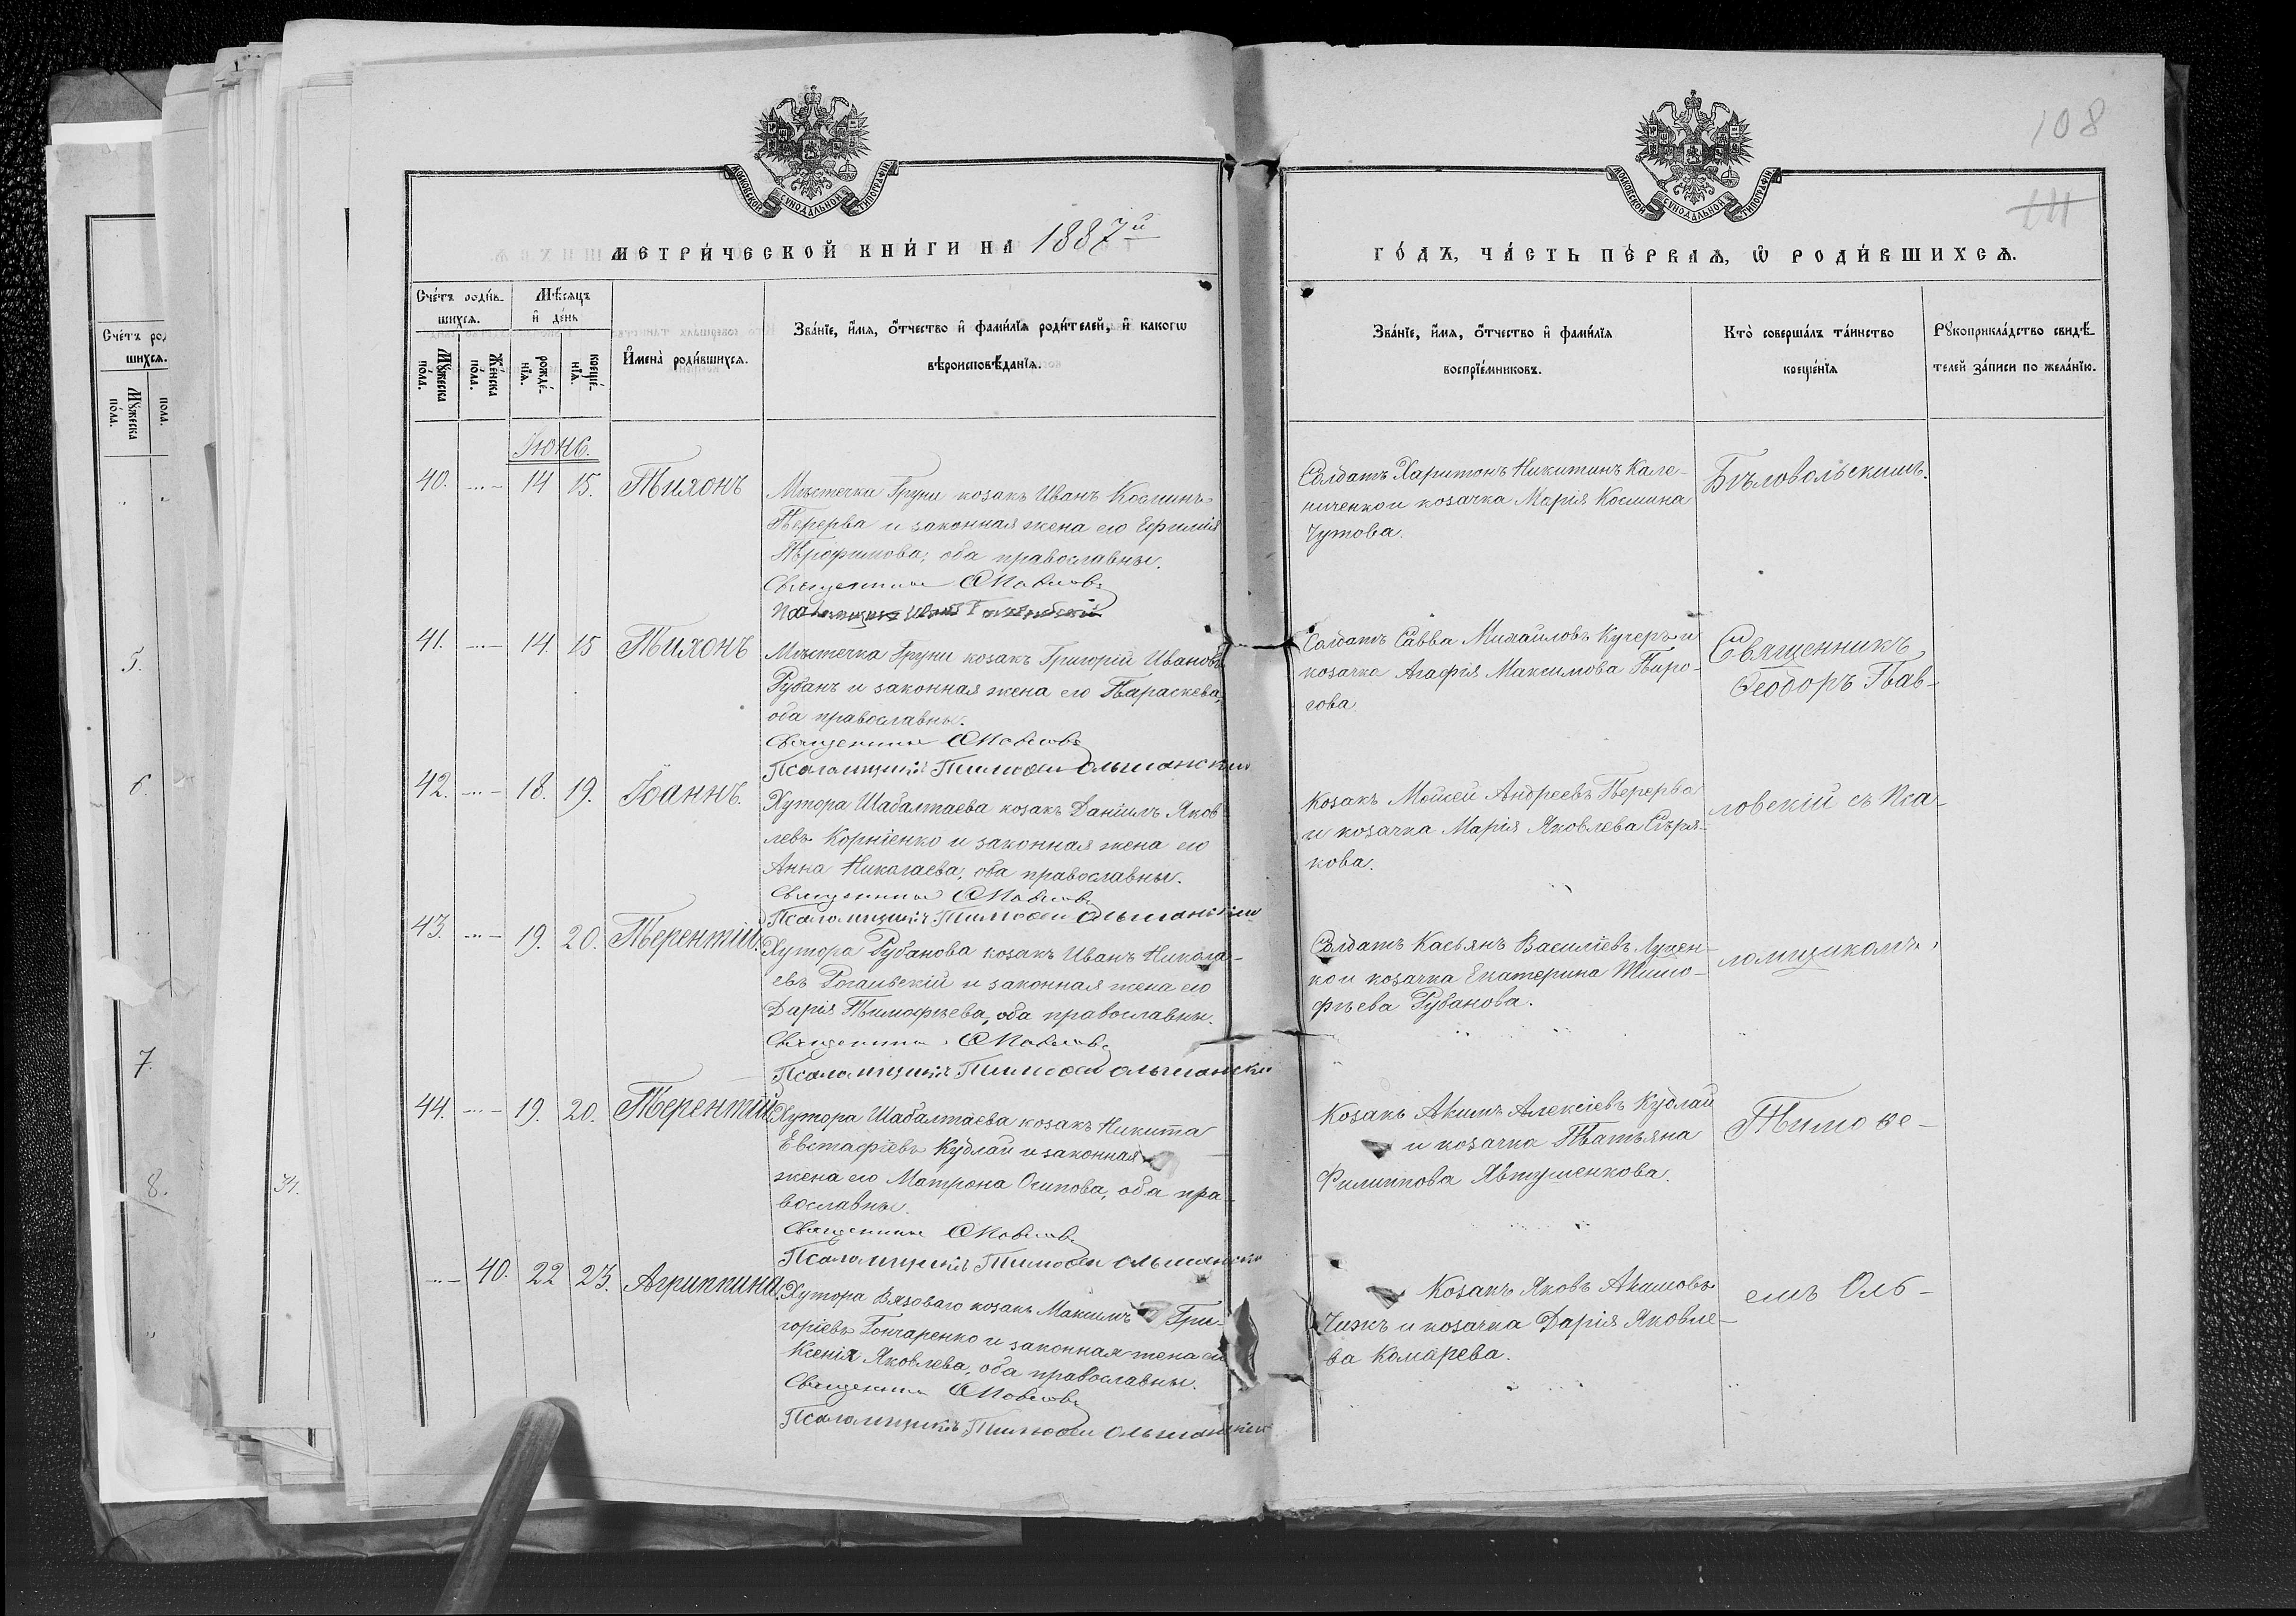 108
111
МОСКОВСКОЙ СѴНОДАЛЬНОЙ ТИПОГРАФІИ
МОСКОВСКОЙ СѴНОДАЛЬНОЙ ТИПОГРАФІИ
МЕТРИ́ЧЕСКОЙ КНИ́ГИ НА 1887й
ГО́ДЪ, ЧА́СТЬ ПЕ́РВАѦ, Ѡ҆ РОДИ́ВШИХСѦ.
Сче́тъ роди́в-
шихсѧ.
Му́жеска
по́ла.
Же́нска
по́ла.
Мѣ́сѧцъ
и҆ де́нь
рожде́-
нїѧ.
креще́-
нїѧ.
И҆мена̀ роди́вшихсѧ.
Зва́нїе, и҆́мѧ, ѻ҆́тчество и҆ фами́лїѧ роди́телей, и҆ какогѡ
вѣроисповѣ́данїѧ.
Зва́нїе, и҆́мѧ, ѻ҆́тчество и҆ фами́лїѧ
воспрїе́мниковъ.
Кто̀ соверша́лъ та́инство
креще́нїѧ
Рꙋкоприкла́дство свидѣ́-
телей за́писи по жела́нїю.
Іюнь.
40. 14 15. Тихонъ
Мѣстечка Груни козакъ Иванъ Косминъ
Перерва и законная жена его Ефимія
Трофимова, оба православны.
Священникъ Ѳ Павлов
Солдатъ Харитонъ Никитинъ Кале-
ниченко и козачка Марія Космина
Чутова.
Бѣловольскимъ.
41. 14. 15 Тихонъ
Мѣстечка Груни козакъ Григорій Ивановъ
Рубанъ и законная жена его Параскева,
оба православны.
Священникъ Ѳ Павлов
Псаломщикъ Тимоѳей Ольшанскій
Солдатъ Савва Михайловъ Кучеръ и
козачка Агафія Максимова Пиро-
гова
Священникъ
Ѳеодоръ Пав-
42. 18. 19. Іоаннъ.
Хутора Шабалтаева козакъ Даніилъ Яков-
левъ Корніенко и законная жена его
Анна Николаева, оба православны.
Священникъ Ѳ Павлов
Псаломщикъ Тимоѳей Ольшанскій
Козакъ Мойсей Андреевъ Перерва
и козачка Марія Яковлева Сѣря-
кова.
ловскій съ Пса-
43. 19. 20. Терентій.
Хутора Рубанова козакъ Иванъ Никола-
евъ Рогальскій и законная жена его
Дарія Тимофѣева, оба православны.
Священникъ Ѳ Павлов
Псаломщикъ Тимоѳей Ольшанскій
Солдатъ Касьянъ Василіевъ Луцен-
ко и козачка Екатерина Тимо-
фѣева Рубанова.
ломщикомъ
44. 19. 20. Терентій
Хутора Шабалтаева козакъ Никита
Евстафіевъ Кублай и законная
жена его Матрона Осипова, оба пра-
вославны.
Священникъ Ѳ Павлов
Псаломщикъ Тимоѳей Ольшанскій
Козакъ Акимъ Алексіевъ Кублай
и козачка Татьяна
Филиппова Явтушенкова.
Тимоѳе-
40. 22 23. Агриппина.
Хутора Вязоваго козакъ Максимъ Гри-
горіевъ Гончаренко и законная жена его
Ксенія Яковлева, оба православны.
Священникъ Ѳ Павлов
Псаломщикъ Тимоѳей Ольшанскій
Козакъ Яковъ Акимовъ
Чижъ и козачка Дарія Яковле-
ва Комарева.
емъ Оль-
Сче́тъ ро
шихсѧ.
Му́жеска
по́ла.
пола.
5.
6.
7.
8.
34.